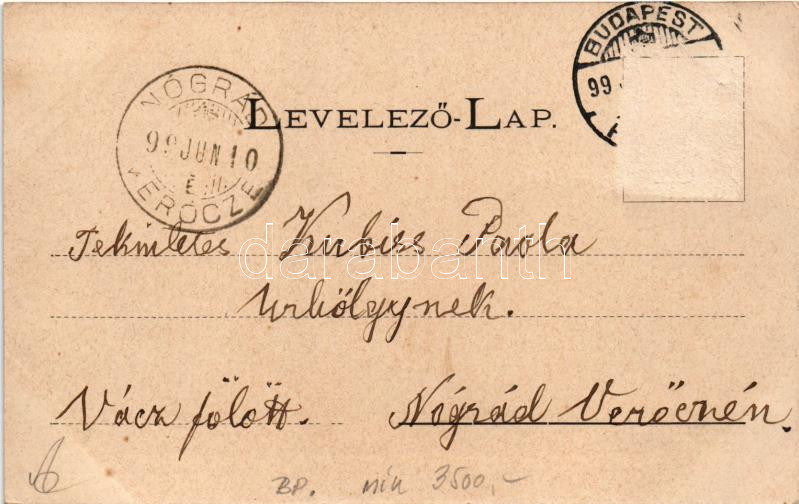 BUDAPEST
99
NÓGRÁD
99 JUN 10
VERŐCZE
LEVELEZŐ-LAP.
Tekintetes Kurbiss Paola
urhölgynek.
Vácz fölött. Nógrád Verőczén.
darabanth
BP. min 3500,-